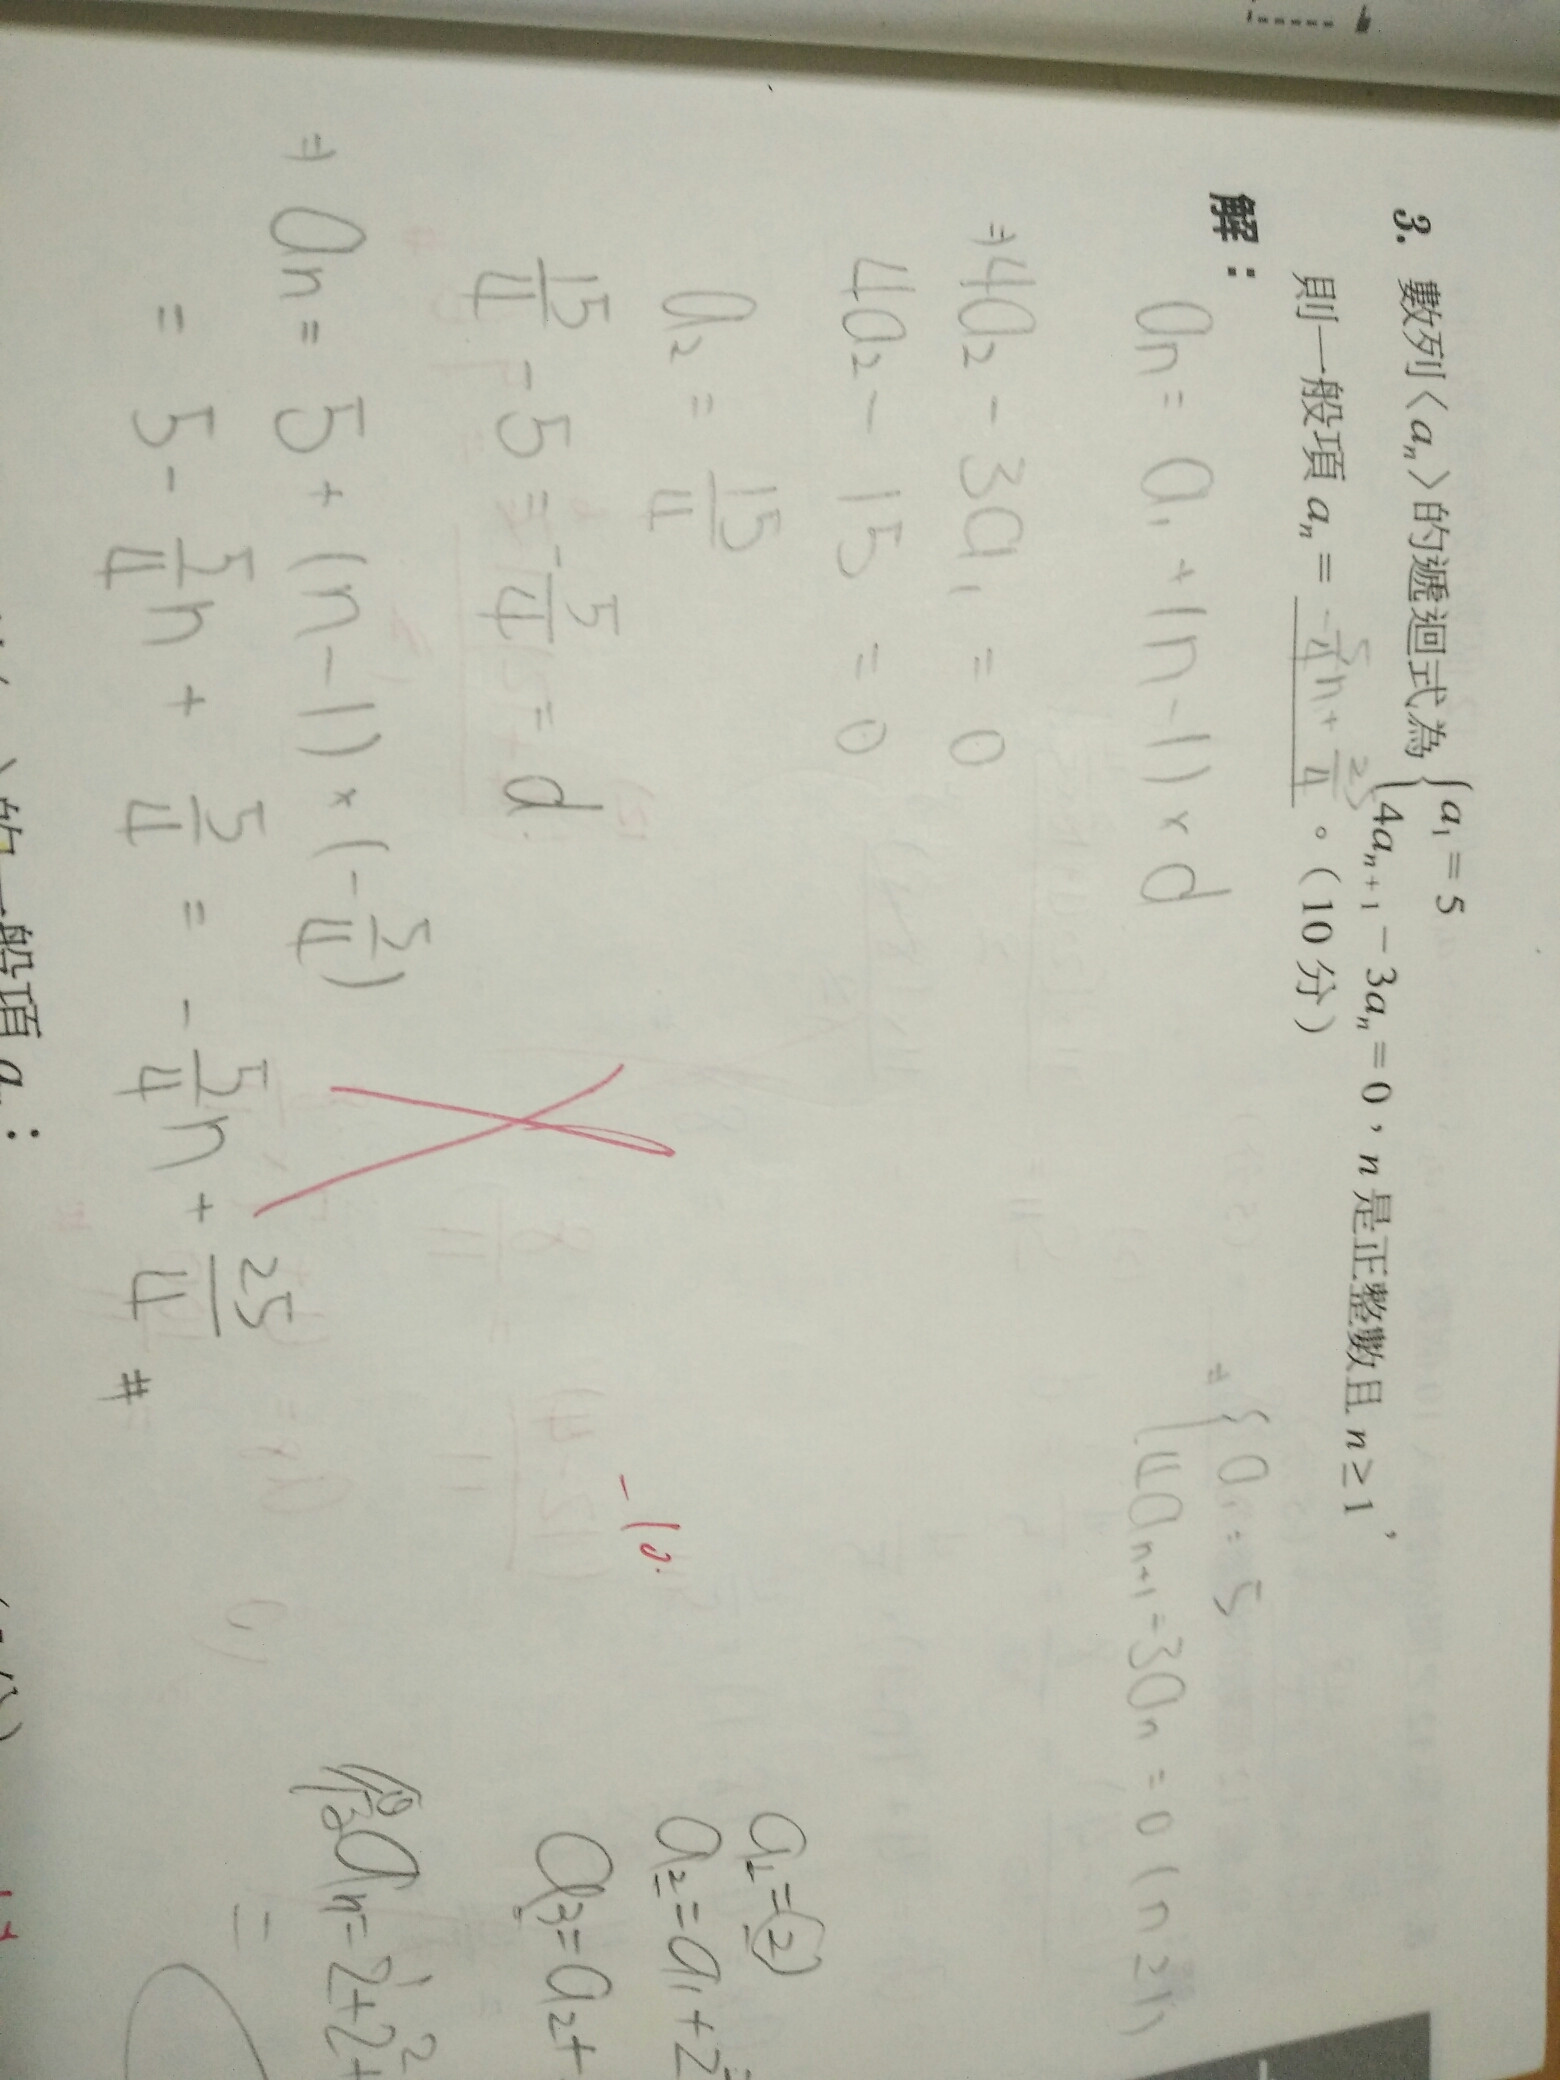 3. 數列〈aₙ〉的遞迴式為 { a₁ = 5
4aₙ₊₁ − 3aₙ = 0，n 是正整數且 n ≥ 1，
則一般項 aₙ = -5/4 n + 25/4 。（10 分）
{ a₁ = 5
4aₙ₊₁ - 3aₙ = 0 (n ≥ 1)
解：
aₙ = a₁ + (n - 1) × d
⇒ 4a₂ - 3a₁ = 0
4a₂ - 15 = 0
a₂ = 15/4
15/4 - 5 = -5/4 = d
⇒ aₙ = 5 + (n - 1) × (-5/4)
= 5 - 5/4 n + 5/4 = -5/4 n + 25/4 #
-10
a₁ = 2
a₂ = a₁ + 2
a₃ = a₂ +
aₙ = 2¹ + 2² +
=
的一般項 a